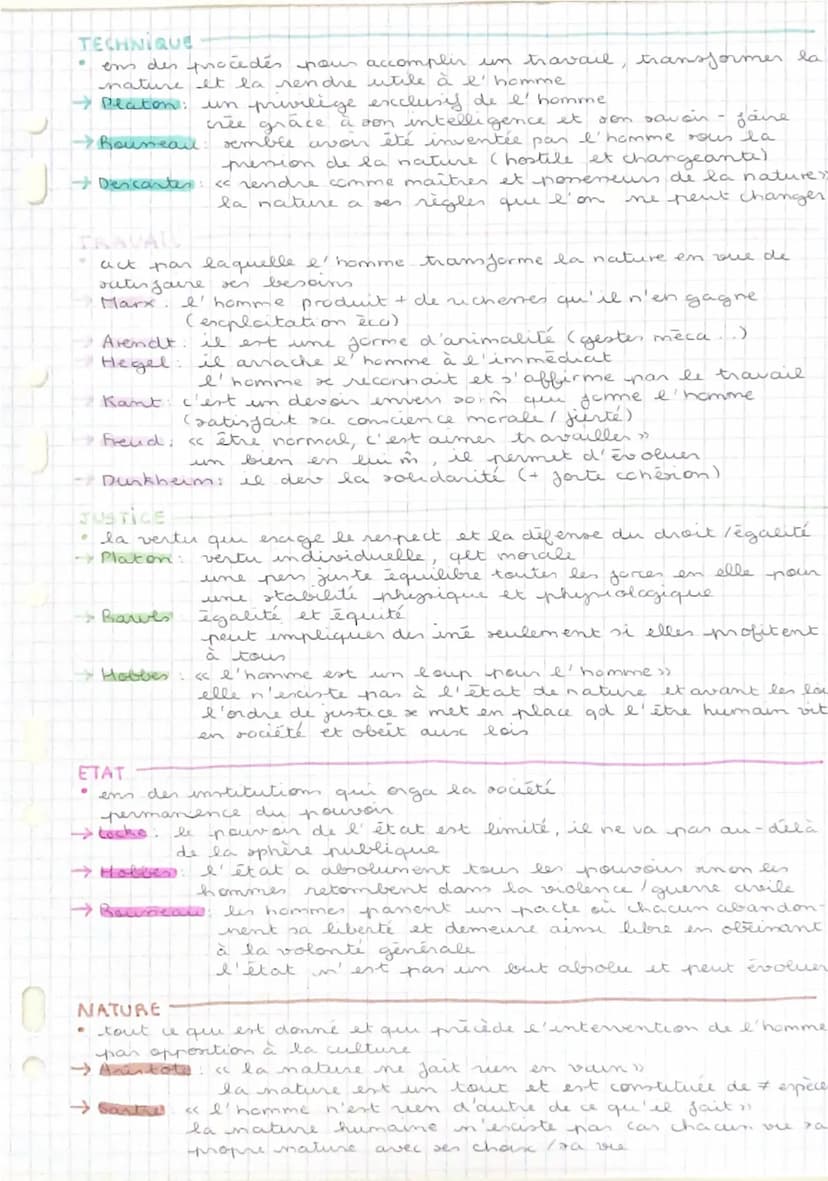 TECHNIQUE
• ens des procédés pour accomplir un travail, transformer la
nature et la rendre utile à l'homme
→ Platon : un privilège exclusif de l'homme
crée grâce à son intelligence et son savoir-faire
→ Rousseau : semble avoir été inventée par l'homme sous la
pression de la nature (hostile et changeante)
→ Descartes : « rendre comme maîtres et possesseurs de la nature »
la nature a ses règles que l'on ne peut changer
TRAVAIL
• act par laquelle l'homme transforme la nature en vue de
satisfaire ses besoins
→ Marx : l'homme produit + de richesses qu'il n'en gagne
(exploitation éco)
→ Arendt : il est une forme d'animalité (gestes méca...)
→ Hegel : il arrache l'homme à l'immédiat
l'homme se reconnait et s'affirme par le travail
→ Kant : c'est un devoir envers soi-m̂ qui forme l'homme
(satisfait sa conscience morale / fierté)
→ Freud : « être normal, c'est aimer travailler »
un bien en lui m̂, il permet d'évoluer
→ Durkheim : il dev la solidarité (+ forte cohésion)
JUSTICE
• la vertu qui exige le respect et la défense du droit / égalité
→ Platon : vertu individuelle, qlt morale
une pers juste équilibre toutes les forces en elle pour
une stabilité physique et physiologique
→ Rawls égalité et équité
peut impliquer des iné seulement si elles profitent
à tous
→ Hobbes : « l'homme est un loup pour l'homme »
elle n'existe pas à l'état de nature et avant les loi
l'ordre de justice se met en place qd l'être humain vit
en société et obeit aux lois
ETAT
• ens des institutions qui orga la société
permanence du pouvoir
→ Locke : le pouvoir de l'état est limité, il ne va pas au-délà
de la sphère publique
→ Hobbes : l'état a absolument tous les pouvoirs sinon les
hommes retombent dans la violence / guerre civile
→ Rousseau : les hommes passent un pacte où chacun abandon-
nent sa liberté et demeure ainsi libre en obéissant
à la volonté générale
l'état n'est pas un but absolu et peut évoluer
NATURE
• tout ce qui est donné et qui précède l'intervention de l'homme
par opposition à la culture
→ Aristote : « la nature ne fait rien en vain »
la nature est un tout et est constituée de ≠ espèce
→ Sartre « l'homme n'est rien d'autre de ce qu'il fait »
la nature humaine n'existe pas car chacun sa
propre nature avec ses choix / sa vie